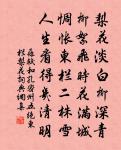 梨花淡白柳深青
柳絮飛時花滿城
惆悵東栏二株雪
人生看得幾清明
蘇軾和孔密州五絕東
栏梨花